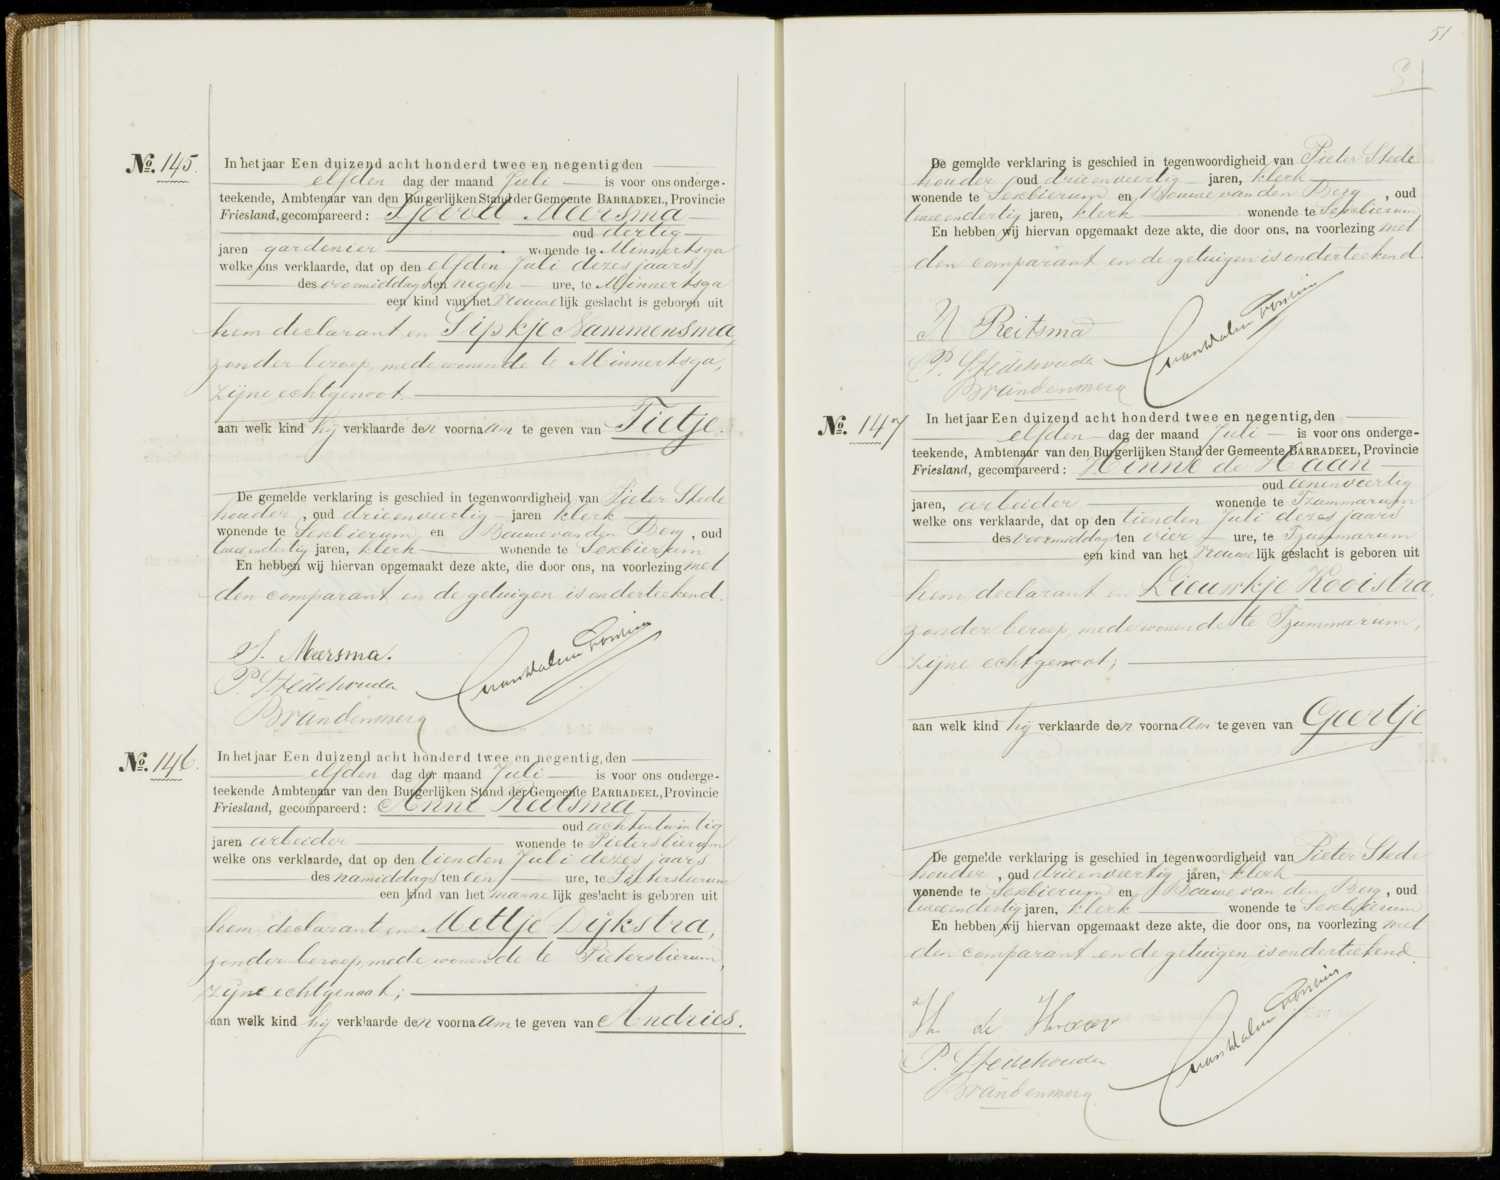 No. 145.
In het jaar Een duizend acht honderd twee en negentig den
elfden dag der maand Juli is voor ons onderge-
teekende, Ambtenaar van den Burgerlijken Stand der Gemeente BARRADEEL, Provincie
Friesland, gecompareerd: Sjoerd Meersma
oud dertig
jaren gardenier wonende te Minnertsga
welke ons verklaarde, dat op den elfden Juli dezes jaars
des voormiddags ten negen ure, te Minnertsga
een kind van het vrouwelijk geslacht is geboren uit
hem declarant en Sipkje Sammensma,
zonder beroep, mede wonende te Minnertsga,
zijne echtgenoot
aan welk kind hij verklaarde den voornaam te geven van Tietje.
De gemelde verklaring is geschied in tegenwoordigheid van Pieter Stede
houder, oud drieenveertig jaren klerk
wonende te Sexbierum en Bouwe van den Berg, oud
tweeendertig jaren, klerk wonende te Sexbierum
En hebben wij hiervan opgemaakt deze akte, die door ons, na voorlezing met
den comparant en de getuigen is onderteekend.
S. Meersma.
P. Stedehouder
B van den Berg
No. 146.
In het jaar Een duizend acht honderd twee en negentig, den
elfden dag der maand Juli is voor ons onderge-
teekende Ambtenaar van den Burgerlijken Stand der Gemeente BARRADEEL, Provincie
Friesland, gecompareerd: Anne Reitsma
oud achtentwintig
jaren arbeider wonende te Pietersbierum
welke ons verklaarde, dat op den tienden Juli dezes jaars
des namiddags ten een ure, te Pietersbierum
een kind van het mannelijk geslacht is geboren uit
hem, declarant en Mettje Dijkstra,
zonder beroep, mede wonende te Pietersbierum,
zijne echtgenoot;
aan welk kind hij verklaarde den voornaam te geven van Andries.
51
De gemelde verklaring is geschied in tegenwoordigheid van Pieter Stede
houder oud drieenveertig jaren, klerk
wonende te Sexbierum en Bouwe van den Berg, oud
tweeendertig jaren, klerk wonende te Sexbierum
En hebben wij hiervan opgemaakt deze akte, die door ons, na voorlezing met
den comparant en de getuigen is onderteekend.
A Reitsma
P. Stedehouder
B van den Berg
No. 147
In het jaar Een duizend acht honderd twee en negentig, den
elfden dag der maand Juli is voor ons onderge-
teekende, Ambtenaar van den Burgerlijken Stand der Gemeente BARRADEEL, Provincie
Friesland, gecompareerd: Hinne de Haan
oud eenenveertig
jaren, arbeider wonende te Tzummarum
welke ons verklaarde, dat op den tienden Juli dezes jaars
des voormiddags ten vier ure, te Tzummarum
een kind van het vrouwelijk geslacht is geboren uit
hem, declarant en Lieuwkje Kooistra,
zonder beroep, mede wonende te Tzummarum,
zijne echtgenoot;
aan welk kind hij verklaarde den voornaam te geven van Geertje
De gemelde verklaring is geschied in tegenwoordigheid van Pieter Stede
houder, oud drieenveertig jaren, klerk
wonende te Sexbierum en Bouwe van den Berg, oud
tweeendertig jaren, klerk wonende te Sexbierum
En hebben wij hiervan opgemaakt deze akte, die door ons, na voorlezing met
den comparant en de getuigen is onderteekend.
H de Haan
P. Stedehouder
B van den Berg